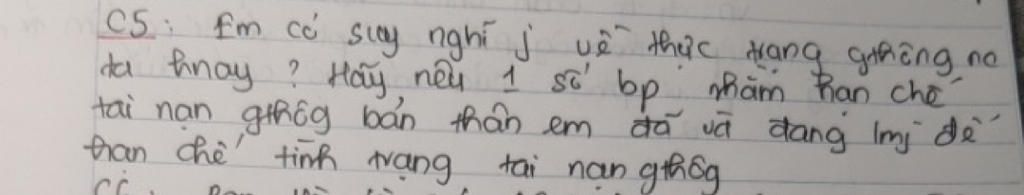 C5: Em có suy nghĩ j về thực trạng gthông nc
ta hnay? Hãy nêu 1 số bp nhằm hạn chế
tai nạn gthôg bản thân em đã và đang lmj để
hạn chế tình trạng tai nạn gthôg